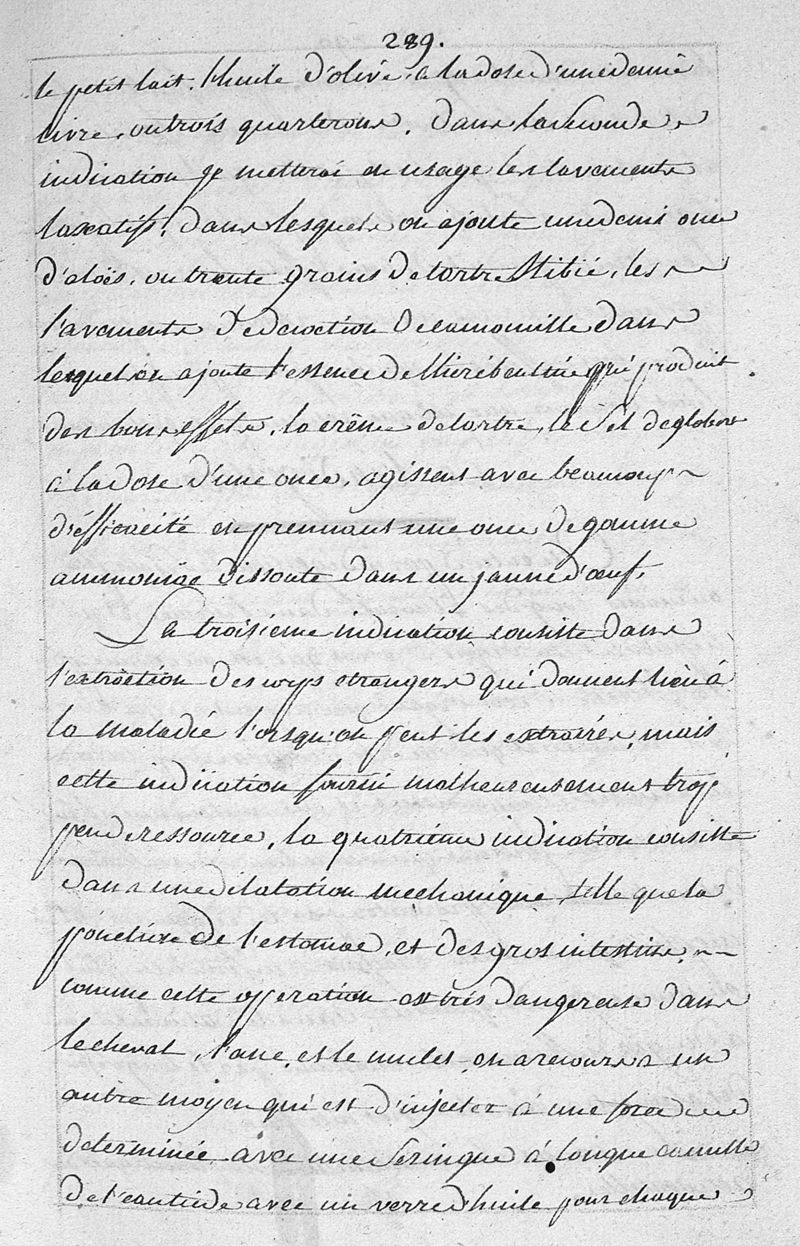 289.
le petit lait. l'huile d'olive, a la dose d'une demie
livre, ou trois quarterons. dans la seconde
indication je metterai en usage les lavements
laxatifs, dans lesquels on ajoute une demi once
d'aloës, ou trente grains de tartre stibié, les
lavements de decoction de camomille dans
lesquel on ajoute l'essence de thérébentine qui produit
des bons effets, la crême de tartre, le sel de glober
à la dose d'une once, agissent avec beaucoup
d'éfficacité en prennant une once de gomme
ammoniac dissoute dans un jaune d'œuf,
La troisieme indication consiste dans
l'extraction des corps etrangers qui donnent lieu à
la maladie lorsqu'on peut les extraire, mais
cette indication fourni malheureusement trop
peu de ressource, la quatrieme indication consiste
dans une dilatation mechanique, telle que la
poncture de l'estomac, et des gros intestins.
comme cette opperation est très dangereuse dans
le cheval, l'ane, et le mulet, on a recours a un
autre moyen qui est d'injecter à une force
determinée avec une seringue à longue canulle
de l'eau tiede avec un verre d'huile pour chaque